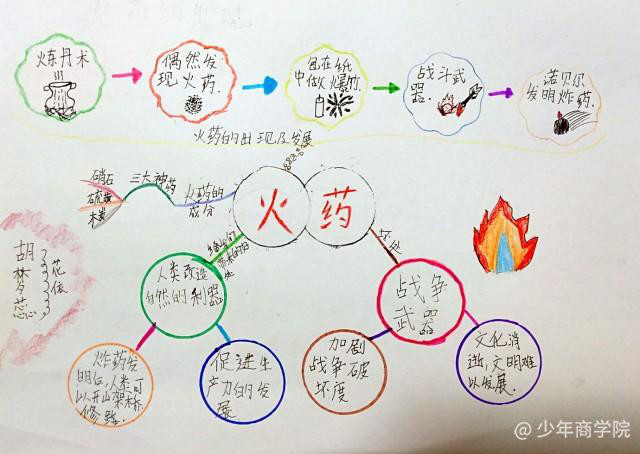 炼丹术
偶然发
现火药.
包在纸
中做爆竹.
战斗武
器.
诺贝尔
发明炸药.
火药的出现及发展
硝石
硫黄
木炭
三大神药
火药的
成分
火药
给我们
带来的好
处
坏处
人类改造
自然的利器
战争
武器
炸药发
明后,人类可
以开山架桥
修路.
促进生
产力的发
展
加剧
战争破
坏度
文化消
逝,文明难
以发展.
胡梦蕊
@少年商学院